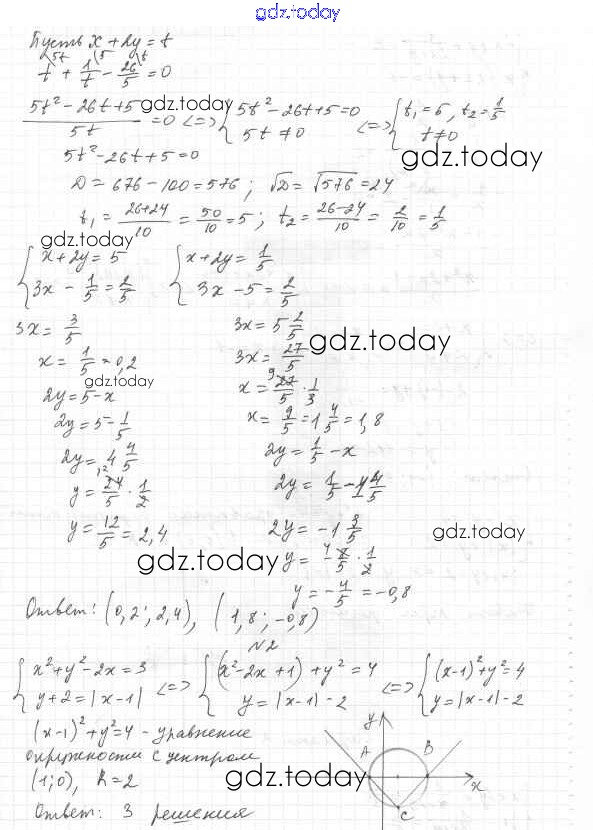 gdz.today
Пусть x + 2y = t
t + 1/t - 26/5 = 0
(5t² - 26t + 5)/5t = 0 <=> { 5t² - 26t + 5 = 0 <=> { t₁ = 5, t₂ = 1/5
5t ≠ 0    t ≠ 0
gdz.today
gdz.today
5t² - 26t + 5 = 0
D = 676 - 100 = 576; √D = √576 = 24
t₁ = (26+24)/10 = 50/10 = 5; t₂ = (26-24)/10 = 2/10 = 1/5
gdz.today
{ x + 2y = 5    { x + 2y = 1/5
3x - 1/5 = 2/5    3x - 5 = 2/5
3x = 3/5    3x = 5 2/5
gdz.today
x = 1/5 = 0,2    3x = 27/5
gdz.today
2y = 5 - x    x = 27/5 · 1/3
2y = 5 - 1/5    x = 9/5 = 1 4/5 = 1,8
2y = 4 4/5    2y = 1/5 - x
y = 24/5 · 1/2    2y = 1/5 - 1 4/5
y = 12/5 = 2,4    2y = -1 3/5
gdz.today
gdz.today
y = -8/5 · 1/2
y = -4/5 = -0,8
Ответ: (0,2; 2,4), (1,8; -0,8)
№2
{ x² + y² - 2x = 3 <=> { (x² - 2x + 1) + y² = 4 <=> { (x-1)² + y² = 4
y + 2 = |x-1|    y = |x-1| - 2    y = |x-1| - 2
(x-1)² + y² = 4 - уравнение
окружности с центром
(1; 0), R = 2
y
A
B
x
C
gdz.today
Ответ: 3 решения